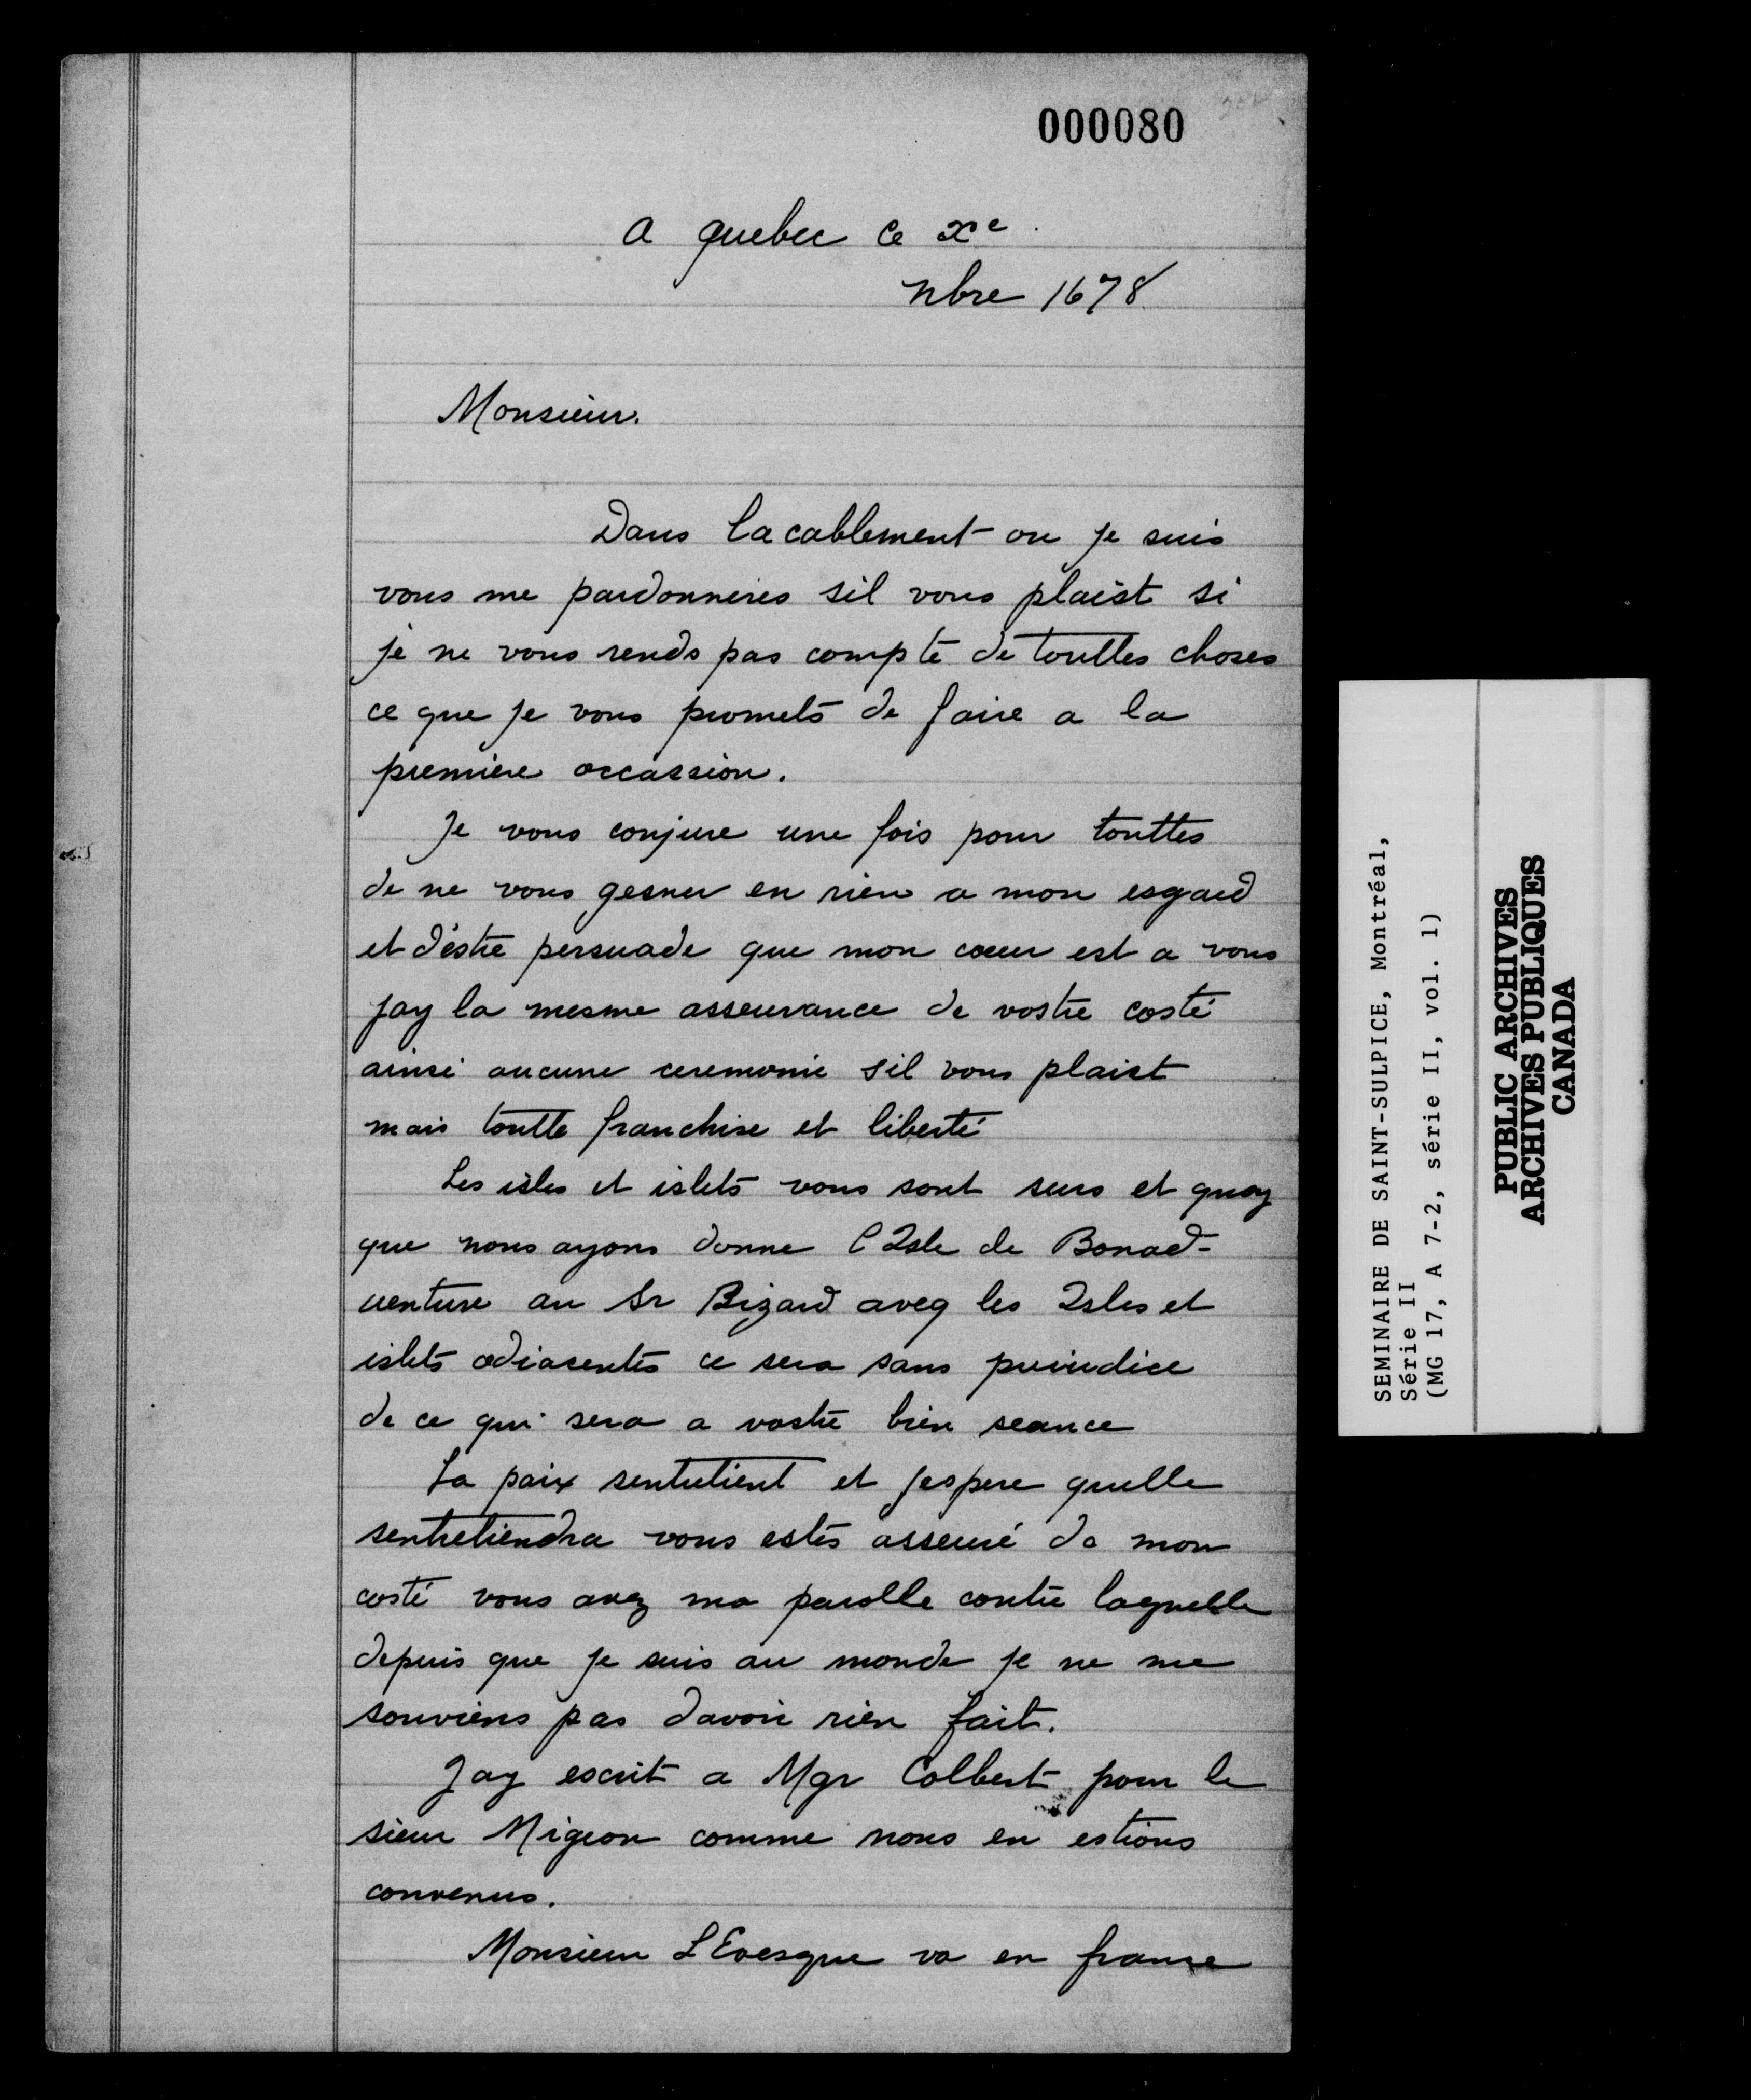 000080
a quebec ce xe
nbre 1678
Monsieur.
Dans lacablement ou je suis
vous me pardonneres sil vous plaist si
je ne vous rends pas compte de touttes choses
ce que je vous promets de faire a la
premiere occassion.
Je vous conjure une fois pour touttes
de ne vous gesner en rien a mon esgard
et d'estre persuade que mon coeur est a vous
jay la mesme asseurance de vostre costé
ainsi aucune ceremonie sil vous plaist
mais toutte franchise et liberté
Les isles et islets vous sont seurs et quoy
que nous ayons donne l Isle de Bonad-
uenture au Sr Bizard aveq les Isles et
islets adiacentes ce sera sans preiudice
de ce qui sera a vostre bien seance
La paix sentretient et jespere quelle
sentretiendra vous estes asseuré de mon
costé vous avez ma parolle contre laquelle
depuis que je suis au monde je ne me
souviens pas davoir rien fait.
Jay escrit a Mgr Colbert pour le
sieur Migeon comme nous en estions
convenus.
Monsieur L Evesque va en france
SEMINAIRE DE SAINT-SULPICE, Montréal,
Série II
(MG 17, A 7-2, série II, vol. 1)
PUBLIC ARCHIVES
ARCHIVES PUBLIQUES
CANADA